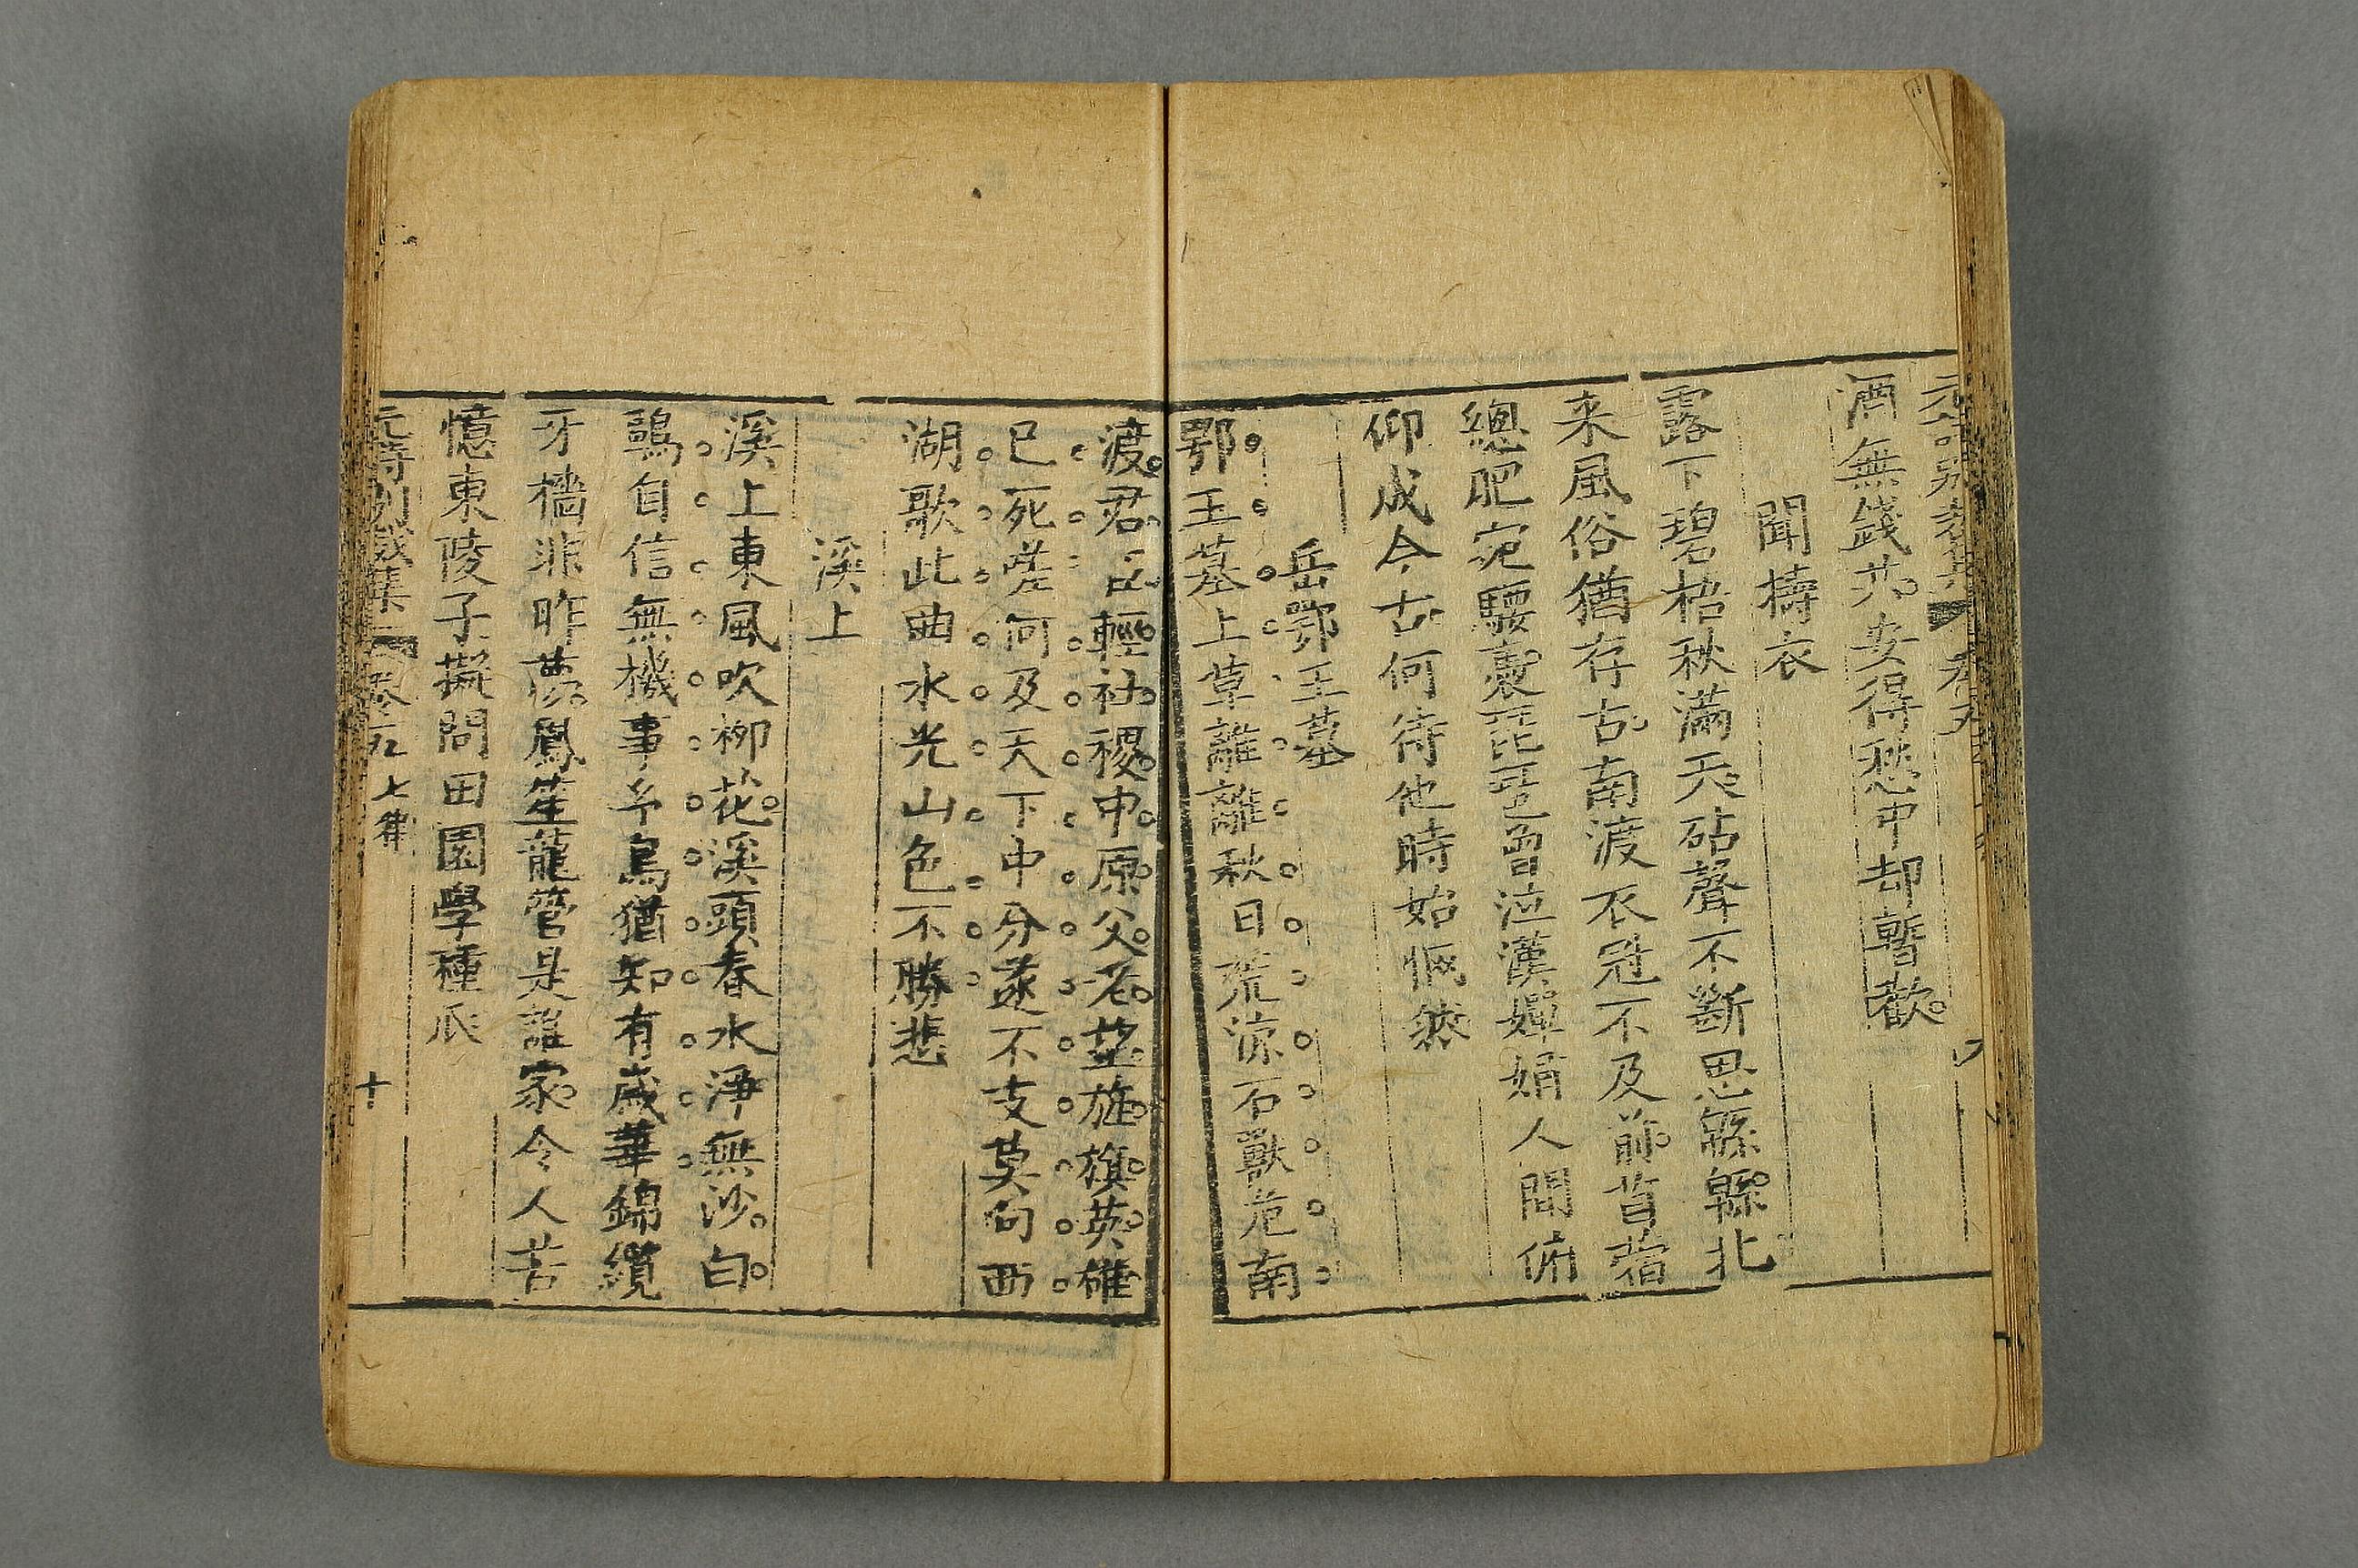 酒無錢共安得愁中却暫歡
聞擣衣
露下碧梧秋滿天砧聲不斷思緜緜北
来風俗猶存古南渡衣冠不及前苜蓿
總肥宛騕褭琵琶曾泣漢嬋娟人間俯
仰成今古何待他時始惘然
岳鄂王墓
鄂王墓上草離離秋日荒涼石獸危南
渡君臣輕社稷中原父老望旌旗英雄
已死嗟何及天下中分遂不支莫向西
湖歌此曲水光山色不勝悲
溪上
溪上東風吹柳花溪頭春水淨無沙白
鷗自信無機事烏猶知有歲華錦纜
牙檣非昨夢鳳笙龍管是誰家令人苦
憶東陵子擬問田園學種瓜
元詩別裁集 卷五 七律 十